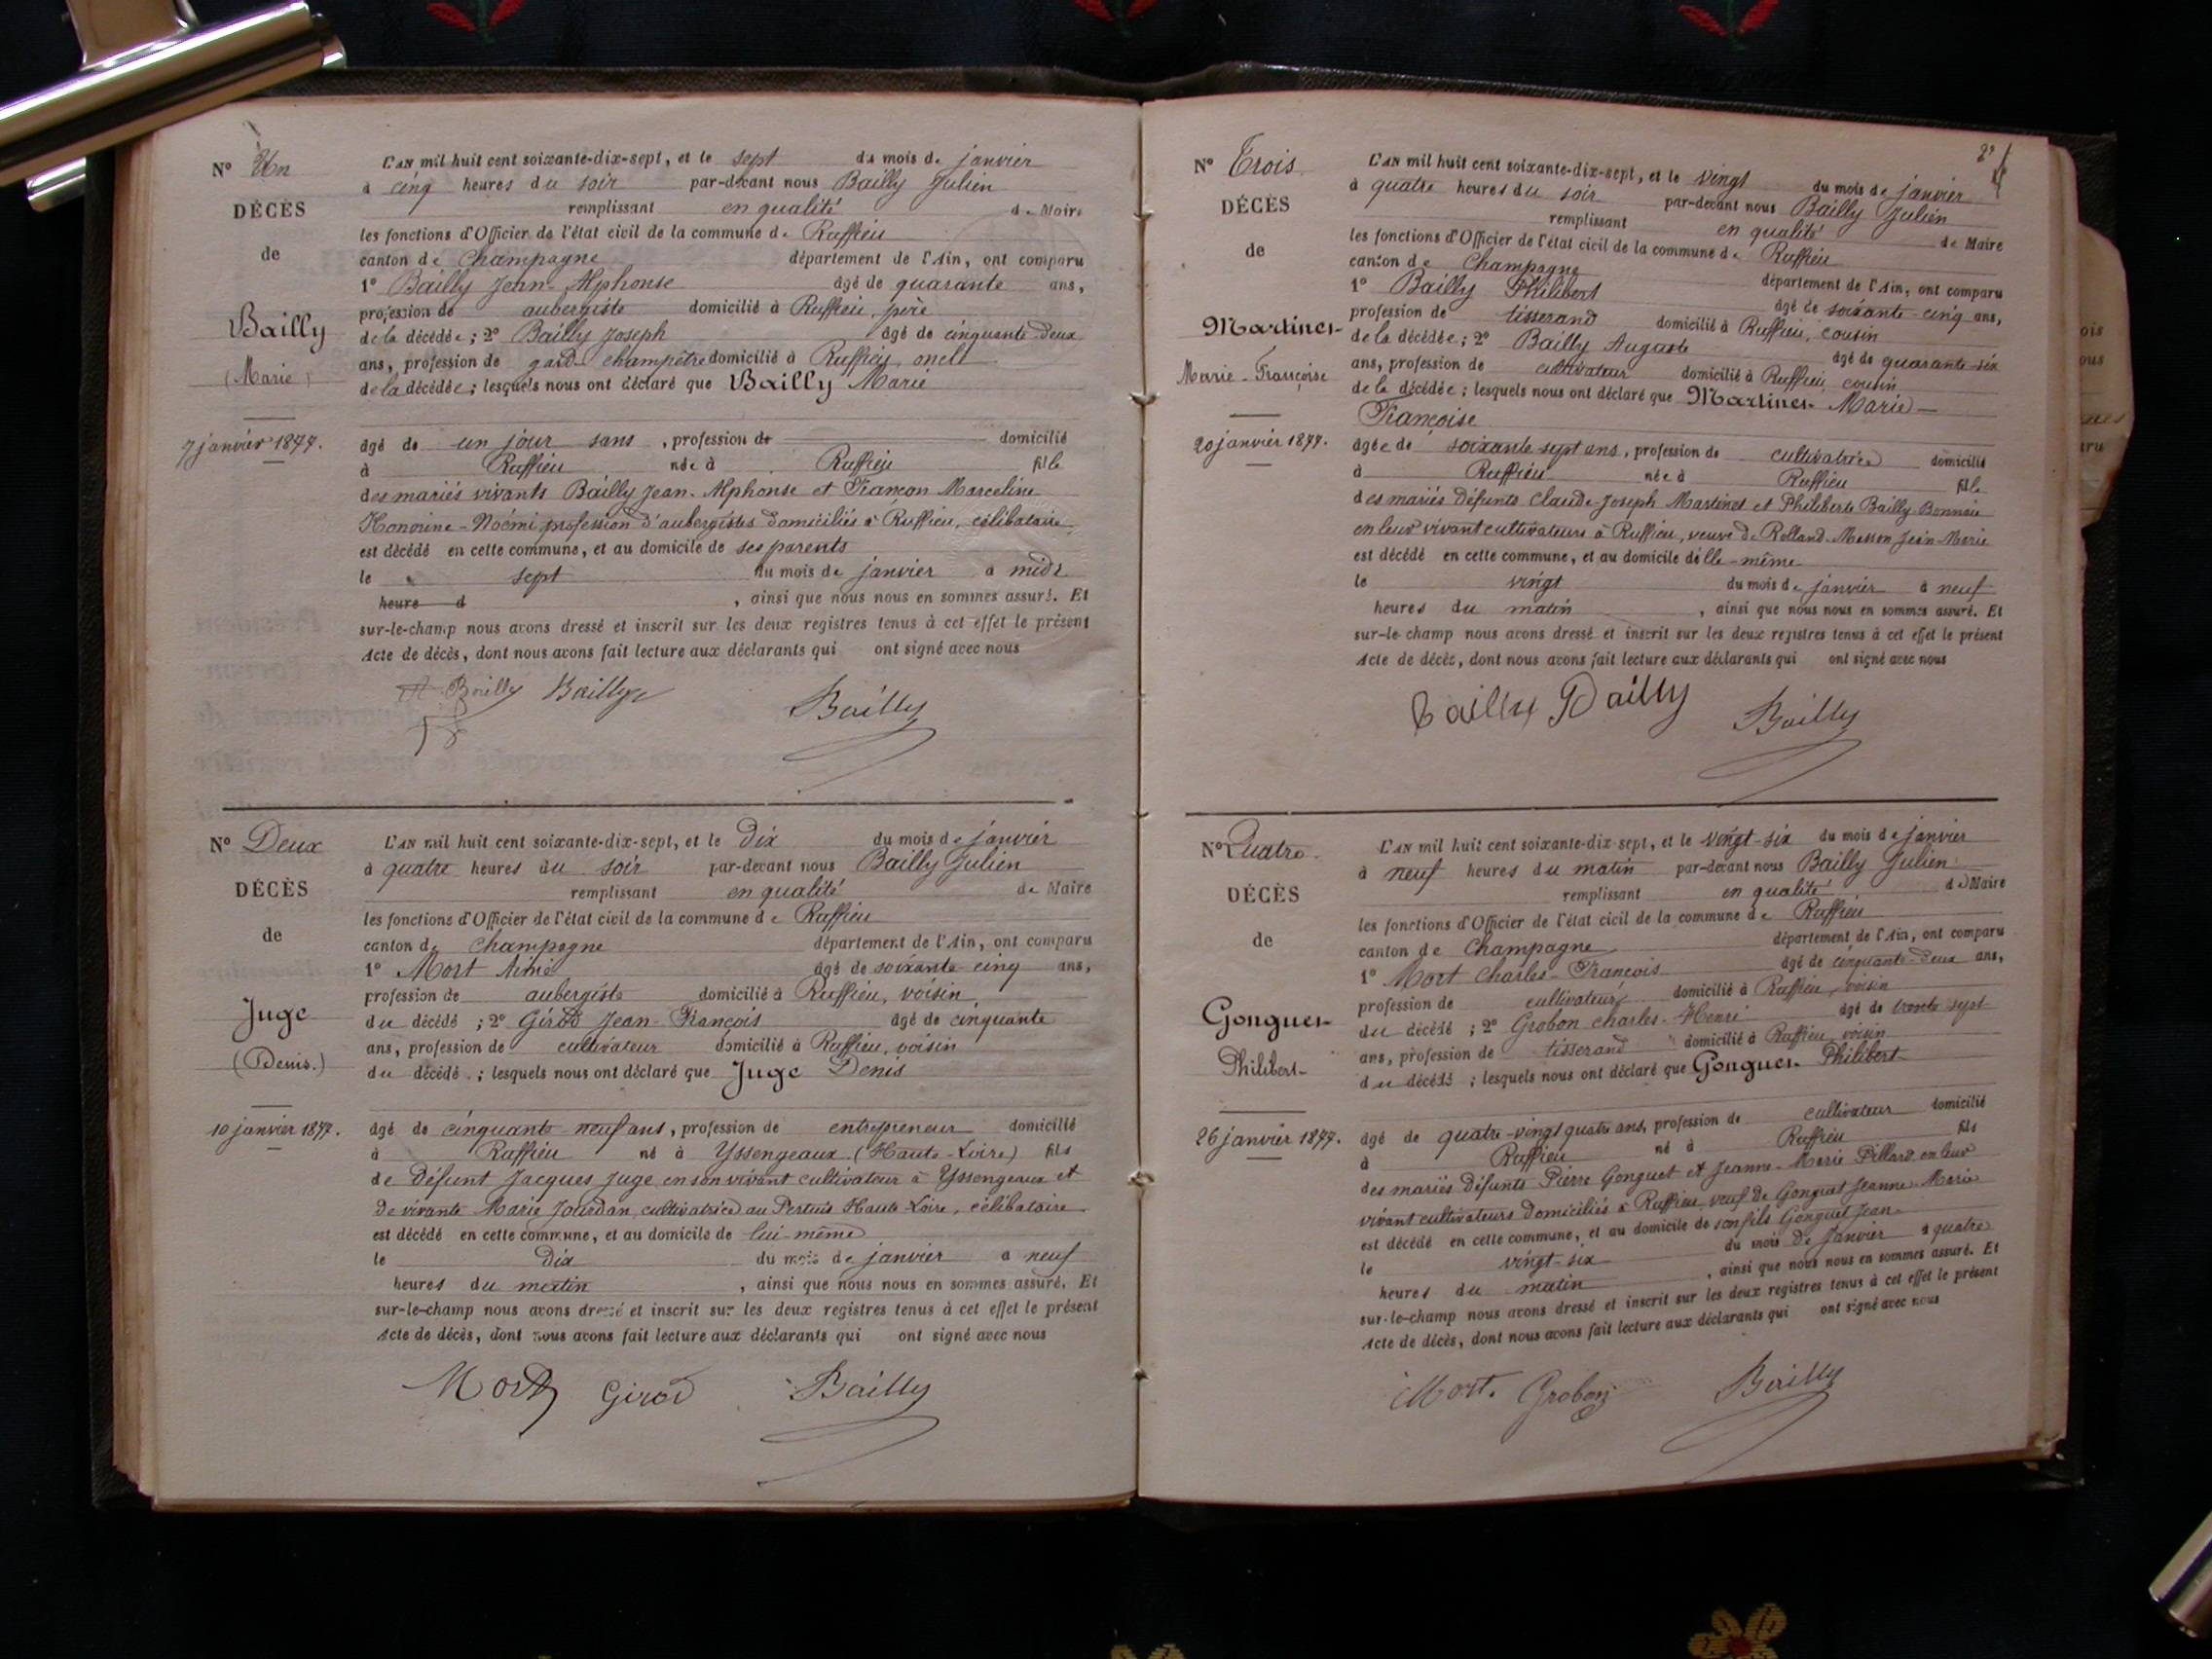 N° Un
DÉCÈS
de
Bailly
(Marie)
7 janvier 1877.
L'AN mil huit cent soixante-dix-sept, et le sept du mois de janvier
à cinq heures du soir par-devant nous Bailly Julien
remplissant en qualité de Maire
les fonctions d'Officier de l'état civil de la commune de Ruffieu
canton de Champagne département de l'Ain, ont comparu
1° Bailly Jean-Alphonse âgé de quarante ans,
profession de aubergiste domicilié à Ruffieu, père
de la décédée; 2° Bailly Joseph âgé de cinquante-deux
ans, profession de garde champêtre domicilié à Ruffieu, oncle
de la décédée; lesquels nous ont déclaré que Bailly Marie
âgé de un jour sans, profession de domicilié
à Ruffieu née à Ruffieu fille
des mariés vivants Bailly Jean-Alphonse et Françon Marceline
Honorine-Noémi profession d'aubergistes domiciliés à Ruffieu, célibataire,
est décédé en cette commune, et au domicile de ses parents
le sept du mois de janvier à midi
heure d , ainsi que nous nous en sommes assuré. Et
sur-le-champ nous avons dressé et inscrit sur les deux registres tenus à cet effet le présent
Acte de décès, dont nous avons fait lecture aux déclarants qui ont signé avec nous
A. Bailly Bailly Bailly
N° Deux
DÉCÈS
de
Juge
(Denis.)
10 janvier 1877.
L'AN mil huit cent soixante-dix-sept, et le dix du mois de janvier
à quatre heures du soir par-devant nous Bailly Julien
remplissant en qualité de Maire
les fonctions d'Officier de l'état civil de la commune de Ruffieu
canton de Champagne département de l'Ain, ont comparu
1° Mort Aimé âgé de soixante-cinq ans,
profession de aubergiste domicilié à Ruffieu, voisin
du décédé; 2° Girod Jean-François âgé de cinquante
ans, profession de cultivateur domicilié à Ruffieu, voisin
du décédé; lesquels nous ont déclaré que Juge Denis
âgé de cinquante-neuf ans, profession de entrepreneur domicilié
à Ruffieu né à Yssengeaux (Haute-Loire) fils
de défunt Jacques Juge, en son vivant cultivateur à Yssengeaux et
de vivante Marie Jourdan, cultivatrice au Pertuis Haute-Loire, célibataire
est décédé en cette commune, et au domicile de lui-même
le dix du mois de janvier à neuf
heures du matin, ainsi que nous nous en sommes assuré. Et
sur-le-champ nous avons dressé et inscrit sur les deux registres tenus à cet effet le présent
Acte de décès, dont nous avons fait lecture aux déclarants qui ont signé avec nous
Mort Girod Bailly
N° Trois
DÉCÈS
de
Martinet
Marie-Françoise
20 janvier 1877.
L'AN mil huit cent soixante-dix-sept, et le vingt du mois de janvier
à quatre heures du soir par-devant nous Bailly Julien
remplissant en qualité de Maire
les fonctions d'Officier de l'état civil de la commune de Ruffieu
canton de Champagne département de l'Ain, ont comparu
1° Bailly Philibert âgé de soixante-cinq ans,
profession de tisserand domicilié à Ruffieu, cousin
de la décédée; 2° Bailly Auguste âgé de quarante-six
ans, profession de cultivateur domicilié à Ruffieu, cousin
de la décédée; lesquels nous ont déclaré que Martinet Marie-
Françoise
âgée de soixante-sept ans, profession de cultivatrice domicilié
à Ruffieu née à Ruffieu fille
des mariés défunts Claude-Joseph Martinet et Philiberte Bailly-Bonnais
en leur vivant cultivateurs à Ruffieu, veuve de Rolland-Masson Jean-Marie
est décédé en cette commune, et au domicile d'elle-même
le vingt du mois de janvier à neuf
heures du matin, ainsi que nous nous en sommes assuré. Et
sur-le-champ nous avons dressé et inscrit sur les deux registres tenus à cet effet le présent
Acte de décès, dont nous avons fait lecture aux déclarants qui ont signé avec nous
Bailly Bailly Bailly
N° Quatre.
DÉCÈS
de
Gonguet
Philibert
26 janvier 1877.
L'AN mil huit cent soixante-dix-sept, et le vingt-six du mois de janvier
à neuf heures du matin par-devant nous Bailly Julien
remplissant en qualité de Maire
les fonctions d'Officier de l'état civil de la commune de Ruffieu
canton de Champagne département de l'Ain, ont comparu
1° Mort Charles-François âgé de cinquante-deux ans,
profession de cultivateur domicilié à Ruffieu, voisin
du décédé; 2° Grobon Charles-Henri âgé de trente-sept
ans, profession de tisserand domicilié à Ruffieu, voisin
du décédé; lesquels nous ont déclaré que Gonguet Philibert
âgé de quatre-vingt quatre ans, profession de cultivateur domicilié
à Ruffieu né à Ruffieu fils
des mariés défunts Pierre Gonguet et Jeanne-Marie Pillard en leur
vivant cultivateurs domiciliés à Ruffieu, veuf de Gonguet Jeanne-Marie
est décédé en cette commune, et au domicile de son fils Gonguet Jean-
le vingt-six du mois de janvier à quatre
heures du matin, ainsi que nous nous en sommes assuré. Et
sur-le-champ nous avons dressé et inscrit sur les deux registres tenus à cet effet le présent
Acte de décès, dont nous avons fait lecture aux déclarants qui ont signé avec nous
Mort. Grobon Bailly